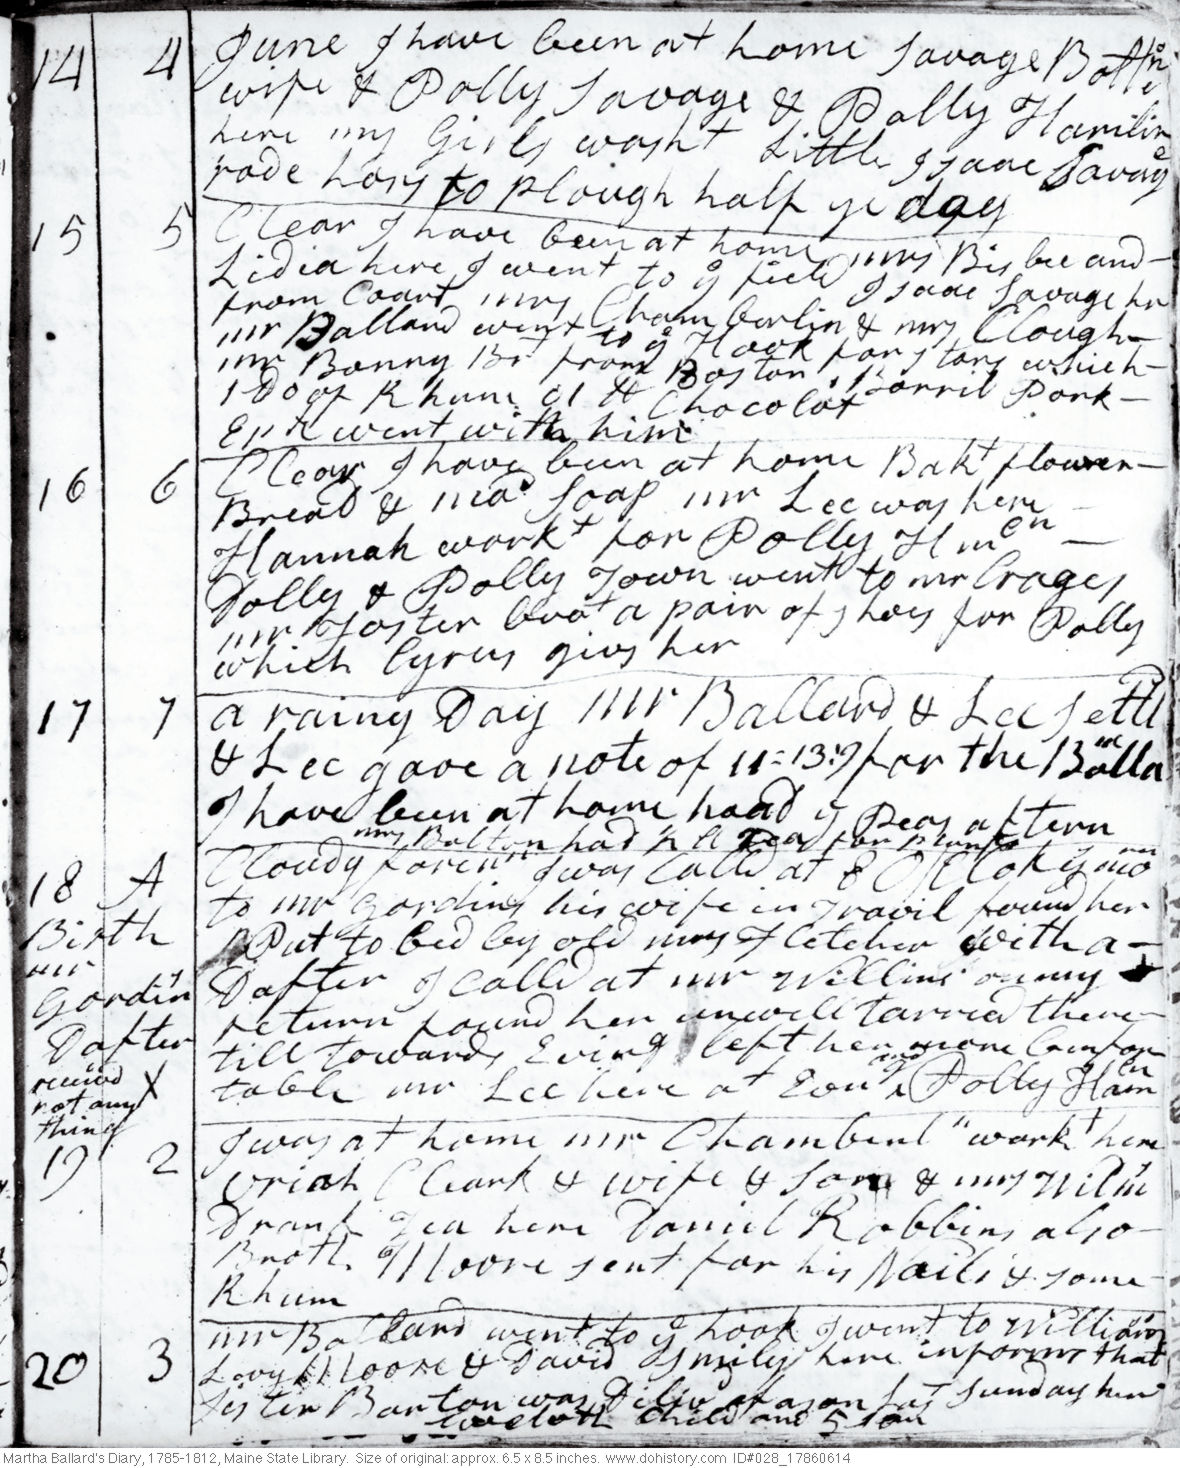 14 4 June I have been at home Savage Boltn
wife & Polly Savage & Polly Hamlin
here my Girls washt Little Isaac Savage
rode hors to plough half ye day
15 5 Clear I have been at home mrs Bisbee and
Lidia here I went to ye field Isaac Savage hr
from Coart mrs Chamberlin & mrs Clough
mr Ballard went to ye Hook for stors which
mr Bonny Bt from Boston 1 Barril Pork
1 Do of Rhum Chocolat
Epm went with him
16 6 Clear I have been at home Bakt flower
Bread & mad Soap mr Lee was here
Hannah workt for Polly Hmen
Dolly & Polly Town went to mr Crages
mr Foster brot a pair of shoes for Polly
which Cyrus givs her
17 7 a rainy Day mr Ballard & Lee settl
& Lee gave a note of 11=13:9 for the Balla nc
I have been at home hoad ye Peas aftern
mrs Bolton had Tea for
18 A Cloudy foren I was Calld at 8 O Clok ys mo
to mr Gordins his wife in Travil found her
Birth Put to bed by old mrs Fletcher with a
mr Dafter I calld at mr Willims on my
Gordin return found her unwell tarried there
Dafter till towards Evinng left her more Comfor
receivd X table mr Lee here at Evng and Polly Ham en
not any
thing
19 2 I was at home mr Chamberl workt here
Uriah Cleark & wife & son & mrs Wilm
Drank Tea here Daniel Robbins also
Broth Moore sent for his Nails & some
Rhum
20 3 mr Ballard went to ye hook I went to William
Levy Moore & David Smily here informs that
Sister Barton was Deliv of a son last Sunday her
twelvth Child and 5 son
Martha Ballard's Diary, 1785-1812, Maine State Library. Size of original: approx. 6.5 x 8.5 inches. www.dohistory.com ID#028_17860614